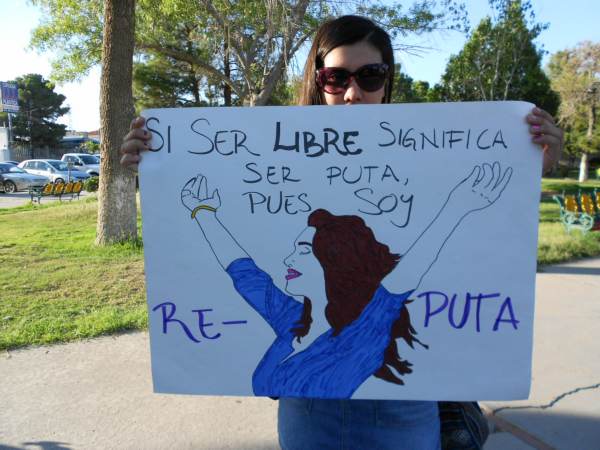 SI SER LIBRE SIGNIFICA
SER PUTA,
PUES SOY
RE-PUTA